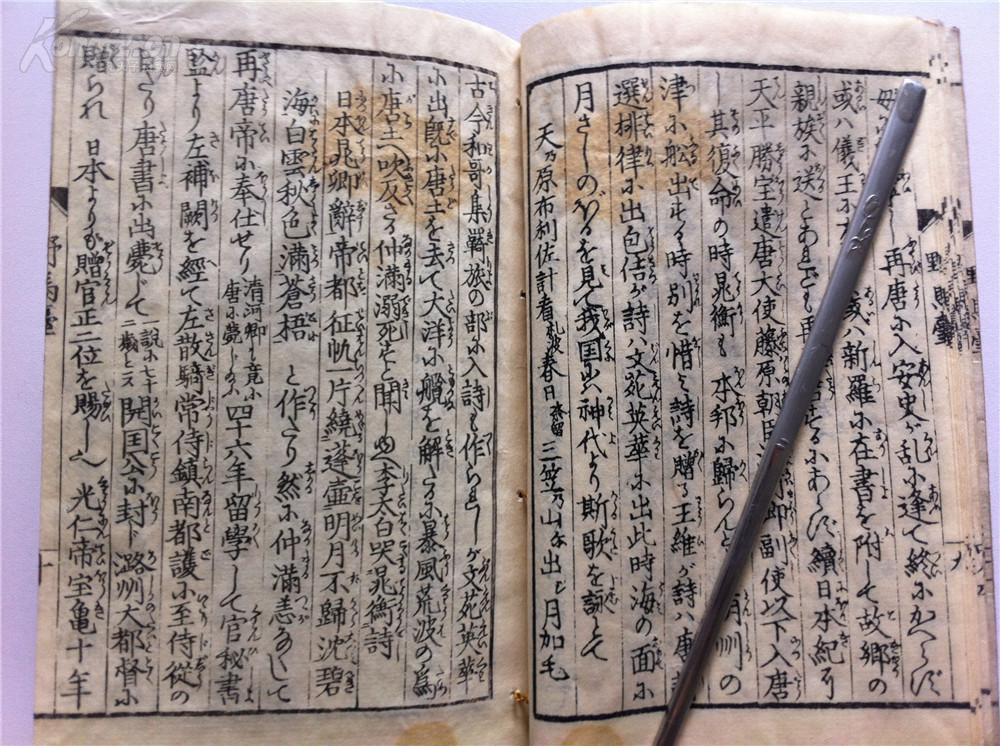 再唐尓入安史が乱尓逢て終尓かへらず
或ハ儀王尓
歳ハ新羅尓在書を附して故郷の
親族尓送とあれども再
せるにあらず續日本紀に
天平勝宝遣唐大使藤原朝臣
副使以下入唐
其復命の時晁衡も本邦尓歸らんと
明州の
津尓舩出する時別を惜て詩を贈る王維が詩ハ唐
選排律尓出包佶が詩ハ文苑英華尓出此時海の面尓
月さしのぼるを見て我国ハ神代より斯歌を詠とて
天乃原布利佐計看礼波春日奈留三笠乃山尓出之月加毛
古今和哥集羇旅の部尓入詩も作られしが文苑英華
尓出既尓唐土を去て大洋尓艫を解しに暴風荒波の為
尓唐土へ吹及さる仲満溺死せと聞し也李太白哭晁衡詩
日本晁卿辭帝都征帆一片繞蓬壷明月不歸沈碧
海白雲秋色満蒼梧 と作さり然尓仲満恙なして
再唐帝尓奉仕せり 清河卿ハ竟尓唐尓薨し給ふ 四十六年留學して官秘書
監より左補闕を經て左散騎常侍鎮南都護尓至侍從の
自さり唐書尓出薨じて 一説尓七十二歳とス 開国公尓封ド潞州大都督尓
贈られ日本よりも贈官正二位を賜し也 光仁帝宝亀十年